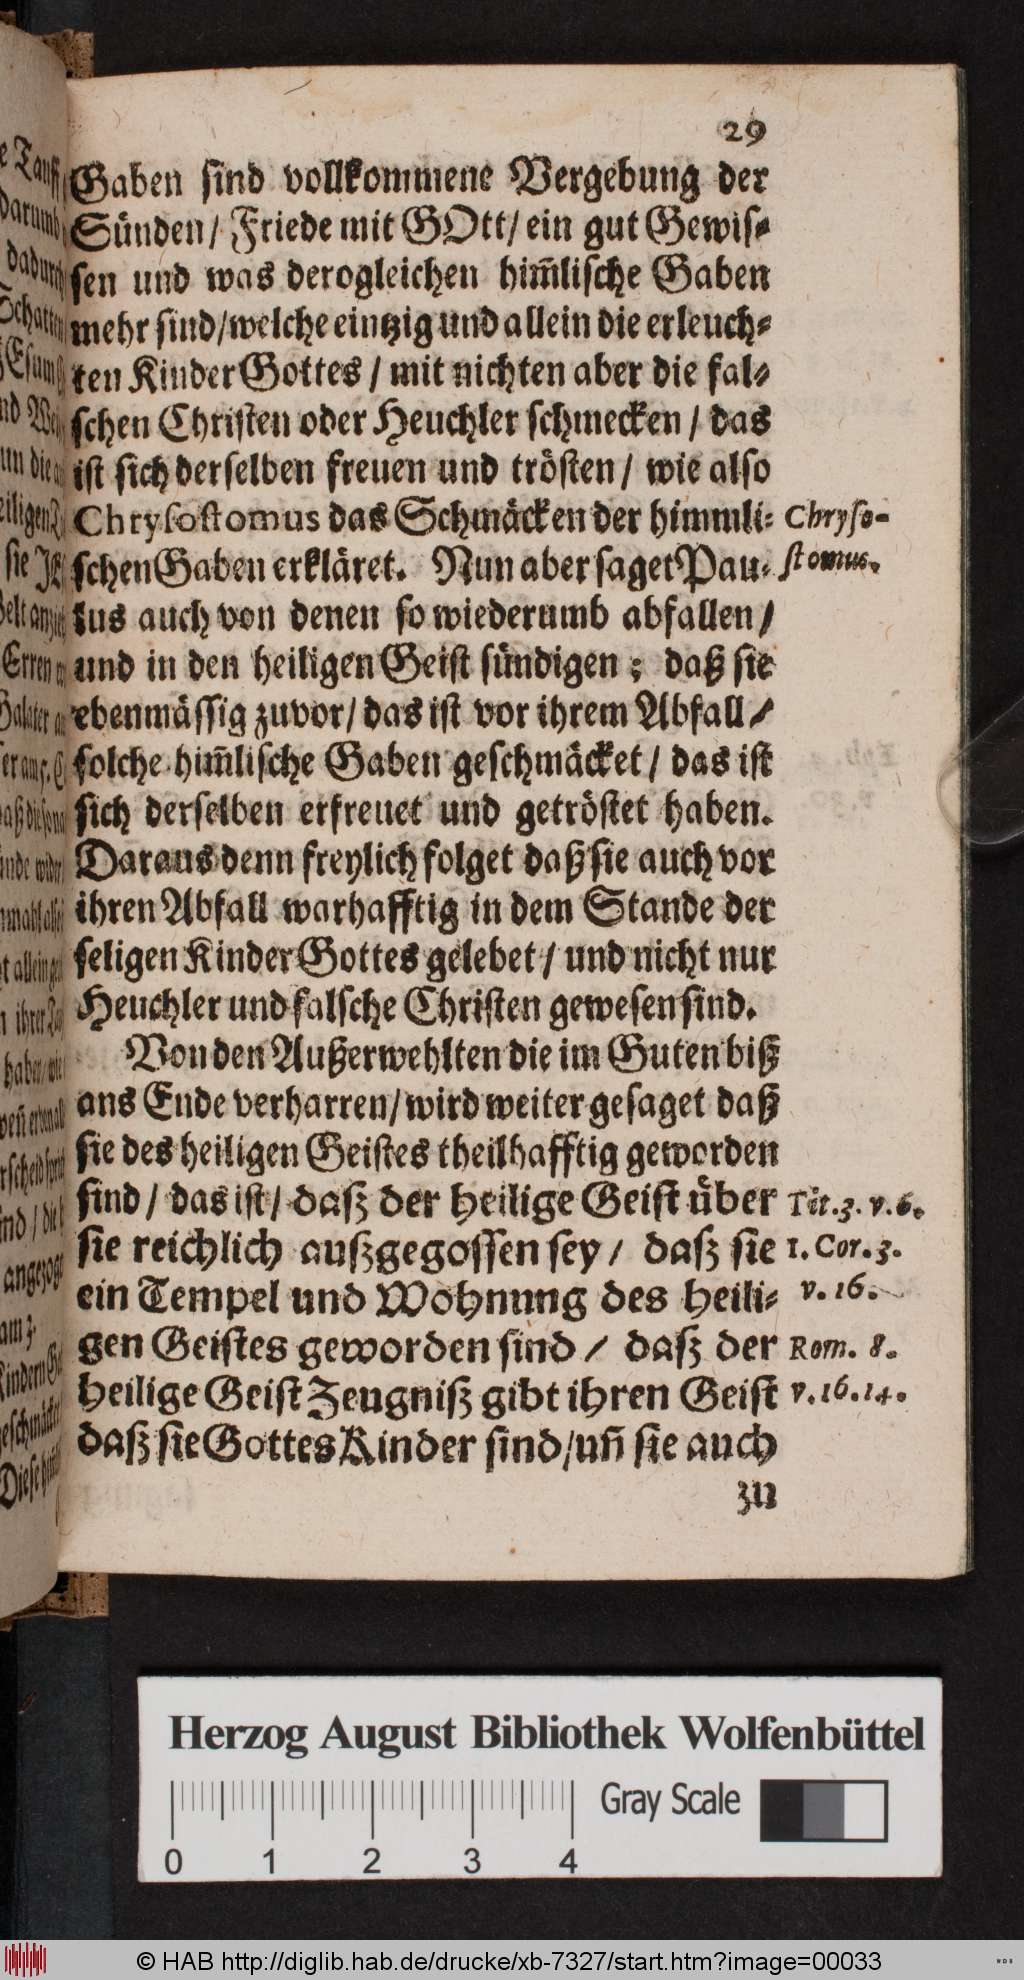 29
Gaben sind vollkommene Vergebung der
Sünden / Friede mit GOtt / ein gut Gewis-
sen und was derogleichen him̃lische Gaben
mehr sind / welche eintzig und allein die erleuch-
ten Kinder Gottes / mit nichten aber die fal-
schen Christen oder Heuchler schmecken / das
ist sich derselben freuen und trösten / wie also
Chrysostomus das Schmäcken der himmli-
schen Gaben erkläret. Nun aber saget Pau-
lus auch von denen so wiederumb abfallen /
und in den heiligen Geist sündigen ; daß sie
ebenmässig zuvor / das ist vor ihrem Abfall /
solche him̃lische Gaben geschmäcket / das ist
sich derselben erfreuet und getröstet haben.
Daraus denn freylich folget daß sie auch vor
ihren Abfall warhafftig in dem Stande der
seligen Kinder Gottes gelebet / und nicht nur
Heuchler und falsche Christen gewesen sind.
Von den Außerwehlten die im Guten biß
ans Ende verharren / wird weiter gesaget daß
sie des heiligen Geistes theilhafftig geworden
sind / das ist / daß der heilige Geist über
sie reichlich außgegossen sey / daß sie
ein Tempel und Wohnung des heili-
gen Geistes geworden sind / daß der
heilige Geist Zeugniß gibt ihren Geist
daß sie Gottes Kinder sind / uñ sie auch
zu
Chryso-
stomus.
Tit. 3. v. 6.
1. Cor. 3.
v. 16.
Rom. 8.
v. 16. 14.
Herzog August Bibliothek Wolfenbüttel
Gray Scale
0 1 2 3 4
© HAB http://diglib.hab.de/drucke/xb-7327/start.htm?image=00033